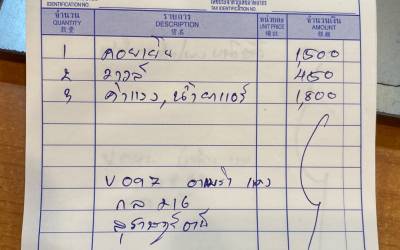 IDENTIFICATION NO. เลขประจำตัวผู้เสียภาษีอากร
TAX IDENTIFICATION NO.
จำนวน รายการ หน่วยละ จำนวนเงิน
QUANTITY DESCRIPTION UNIT PRICE AMOUNT
數量 貨名 銀額
1 คอยเย็น 1,500
2 วาวล์ 450
3 ค่าแรง, น้ำยาแอร์ 1,800
V097
กล 216
สุราษฎร์ธานี